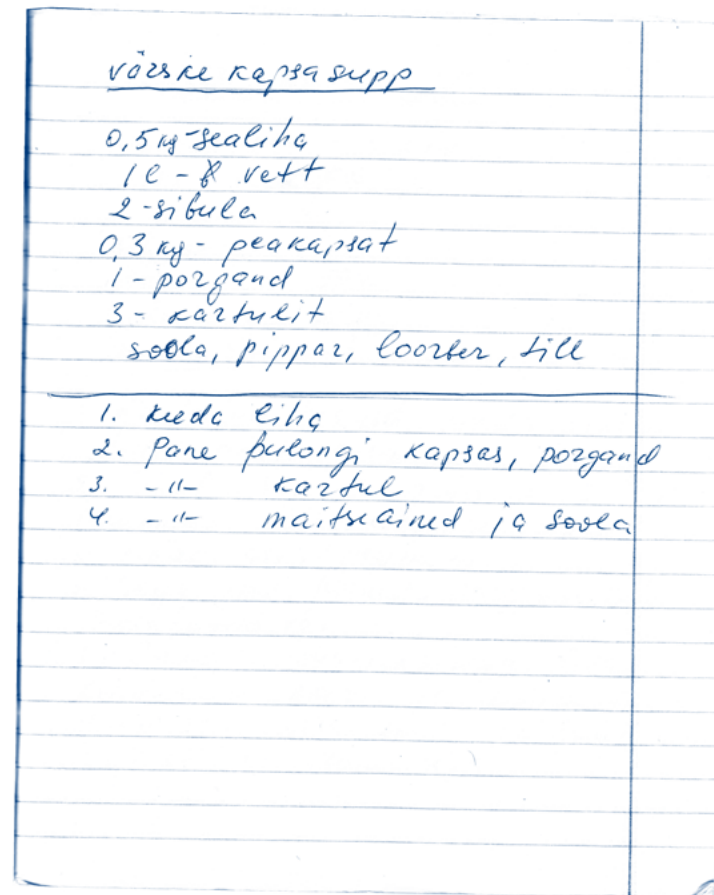 värske kapsasupp
0,5 kg - sealiha
1 l - vett
2 - sibula
0,3 kg - peakapsat
1 - porgand
3 - kartulit
soola, pippar, loorber, till
1. keeda liha
2. Pane pulongi kapsas, porgand
3. -"- kartul
4. -"- maitseained ja soola